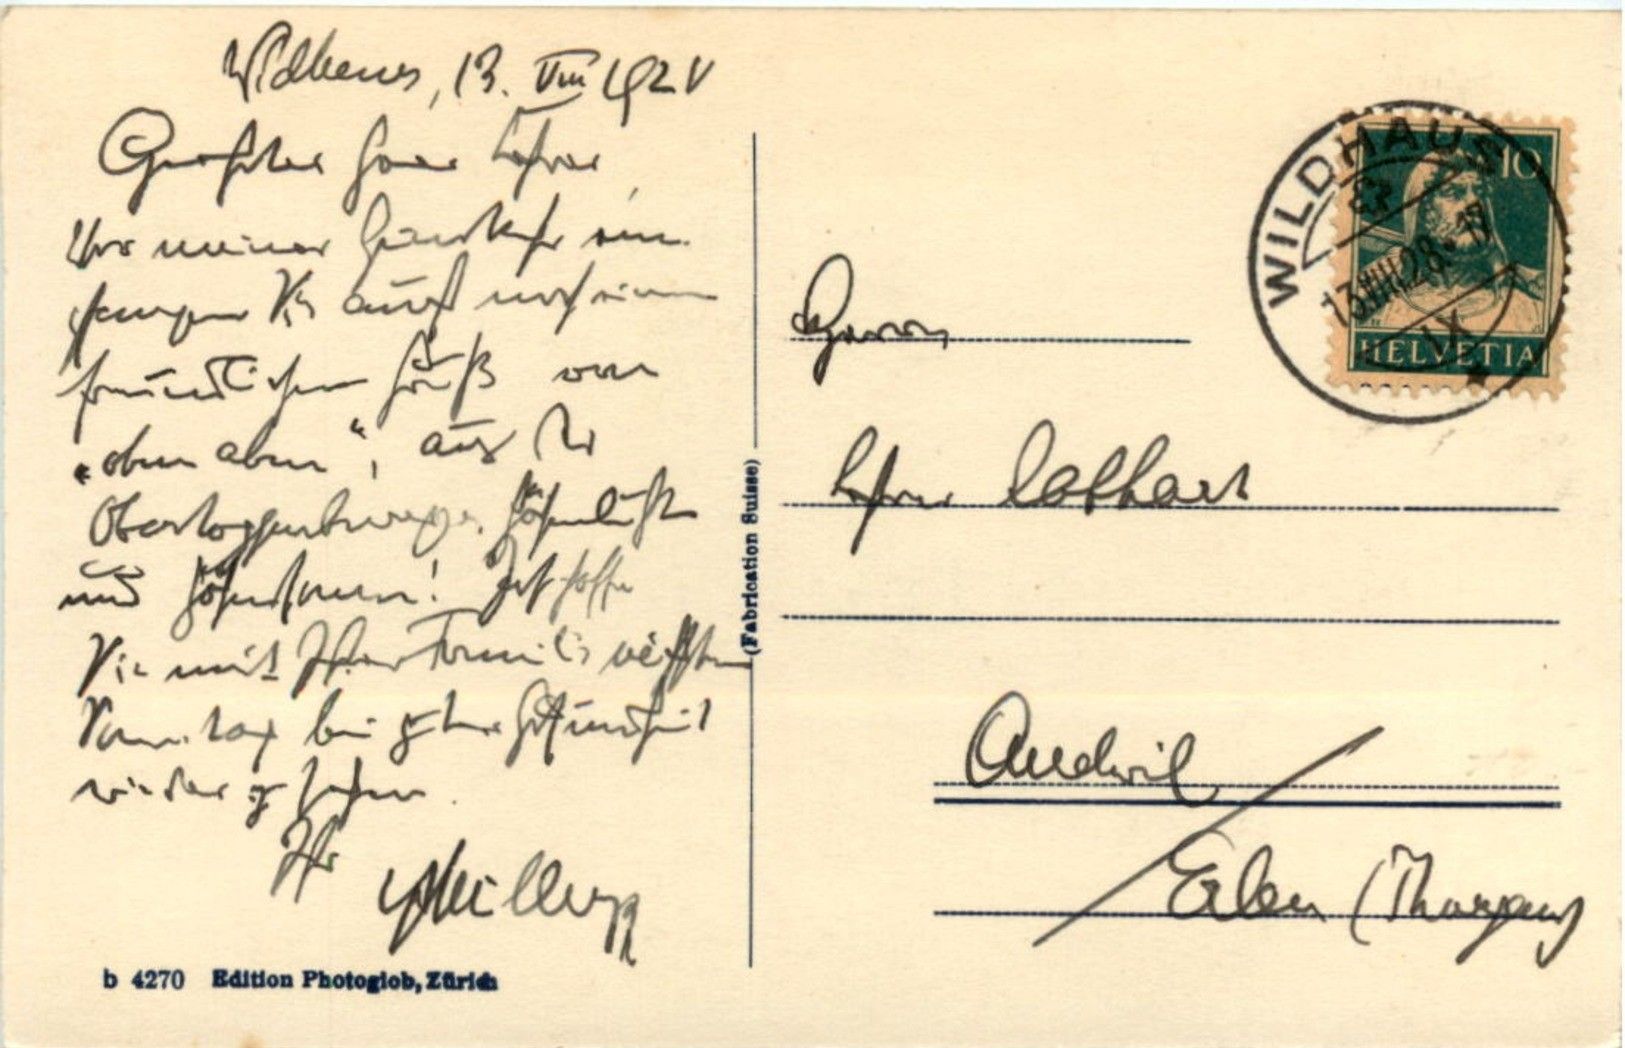 Wildhaus, 13. VIII 1928
Geehrter Herr Lehrer,
Vor meiner Heimkehr em-
pfangen Sie auch noch einen
freundlichen Gruß von
„oben aben“, aus der
Obertoggenburger Höhenluft
und Höhensonne! Ich hoffe
Sie mit Ihrer Familie nächsten
Sonntag bei guter Gesundheit
wieder zu sehen.
Ihr
b 4270 Edition Photoglob, Zürich
(Fabrication Suisse)
WILDHAUS
13.VIII.28.17
IX
10
HELVETIA
Herrn
Lehrer
Andwil
Erlen (Thurgau)